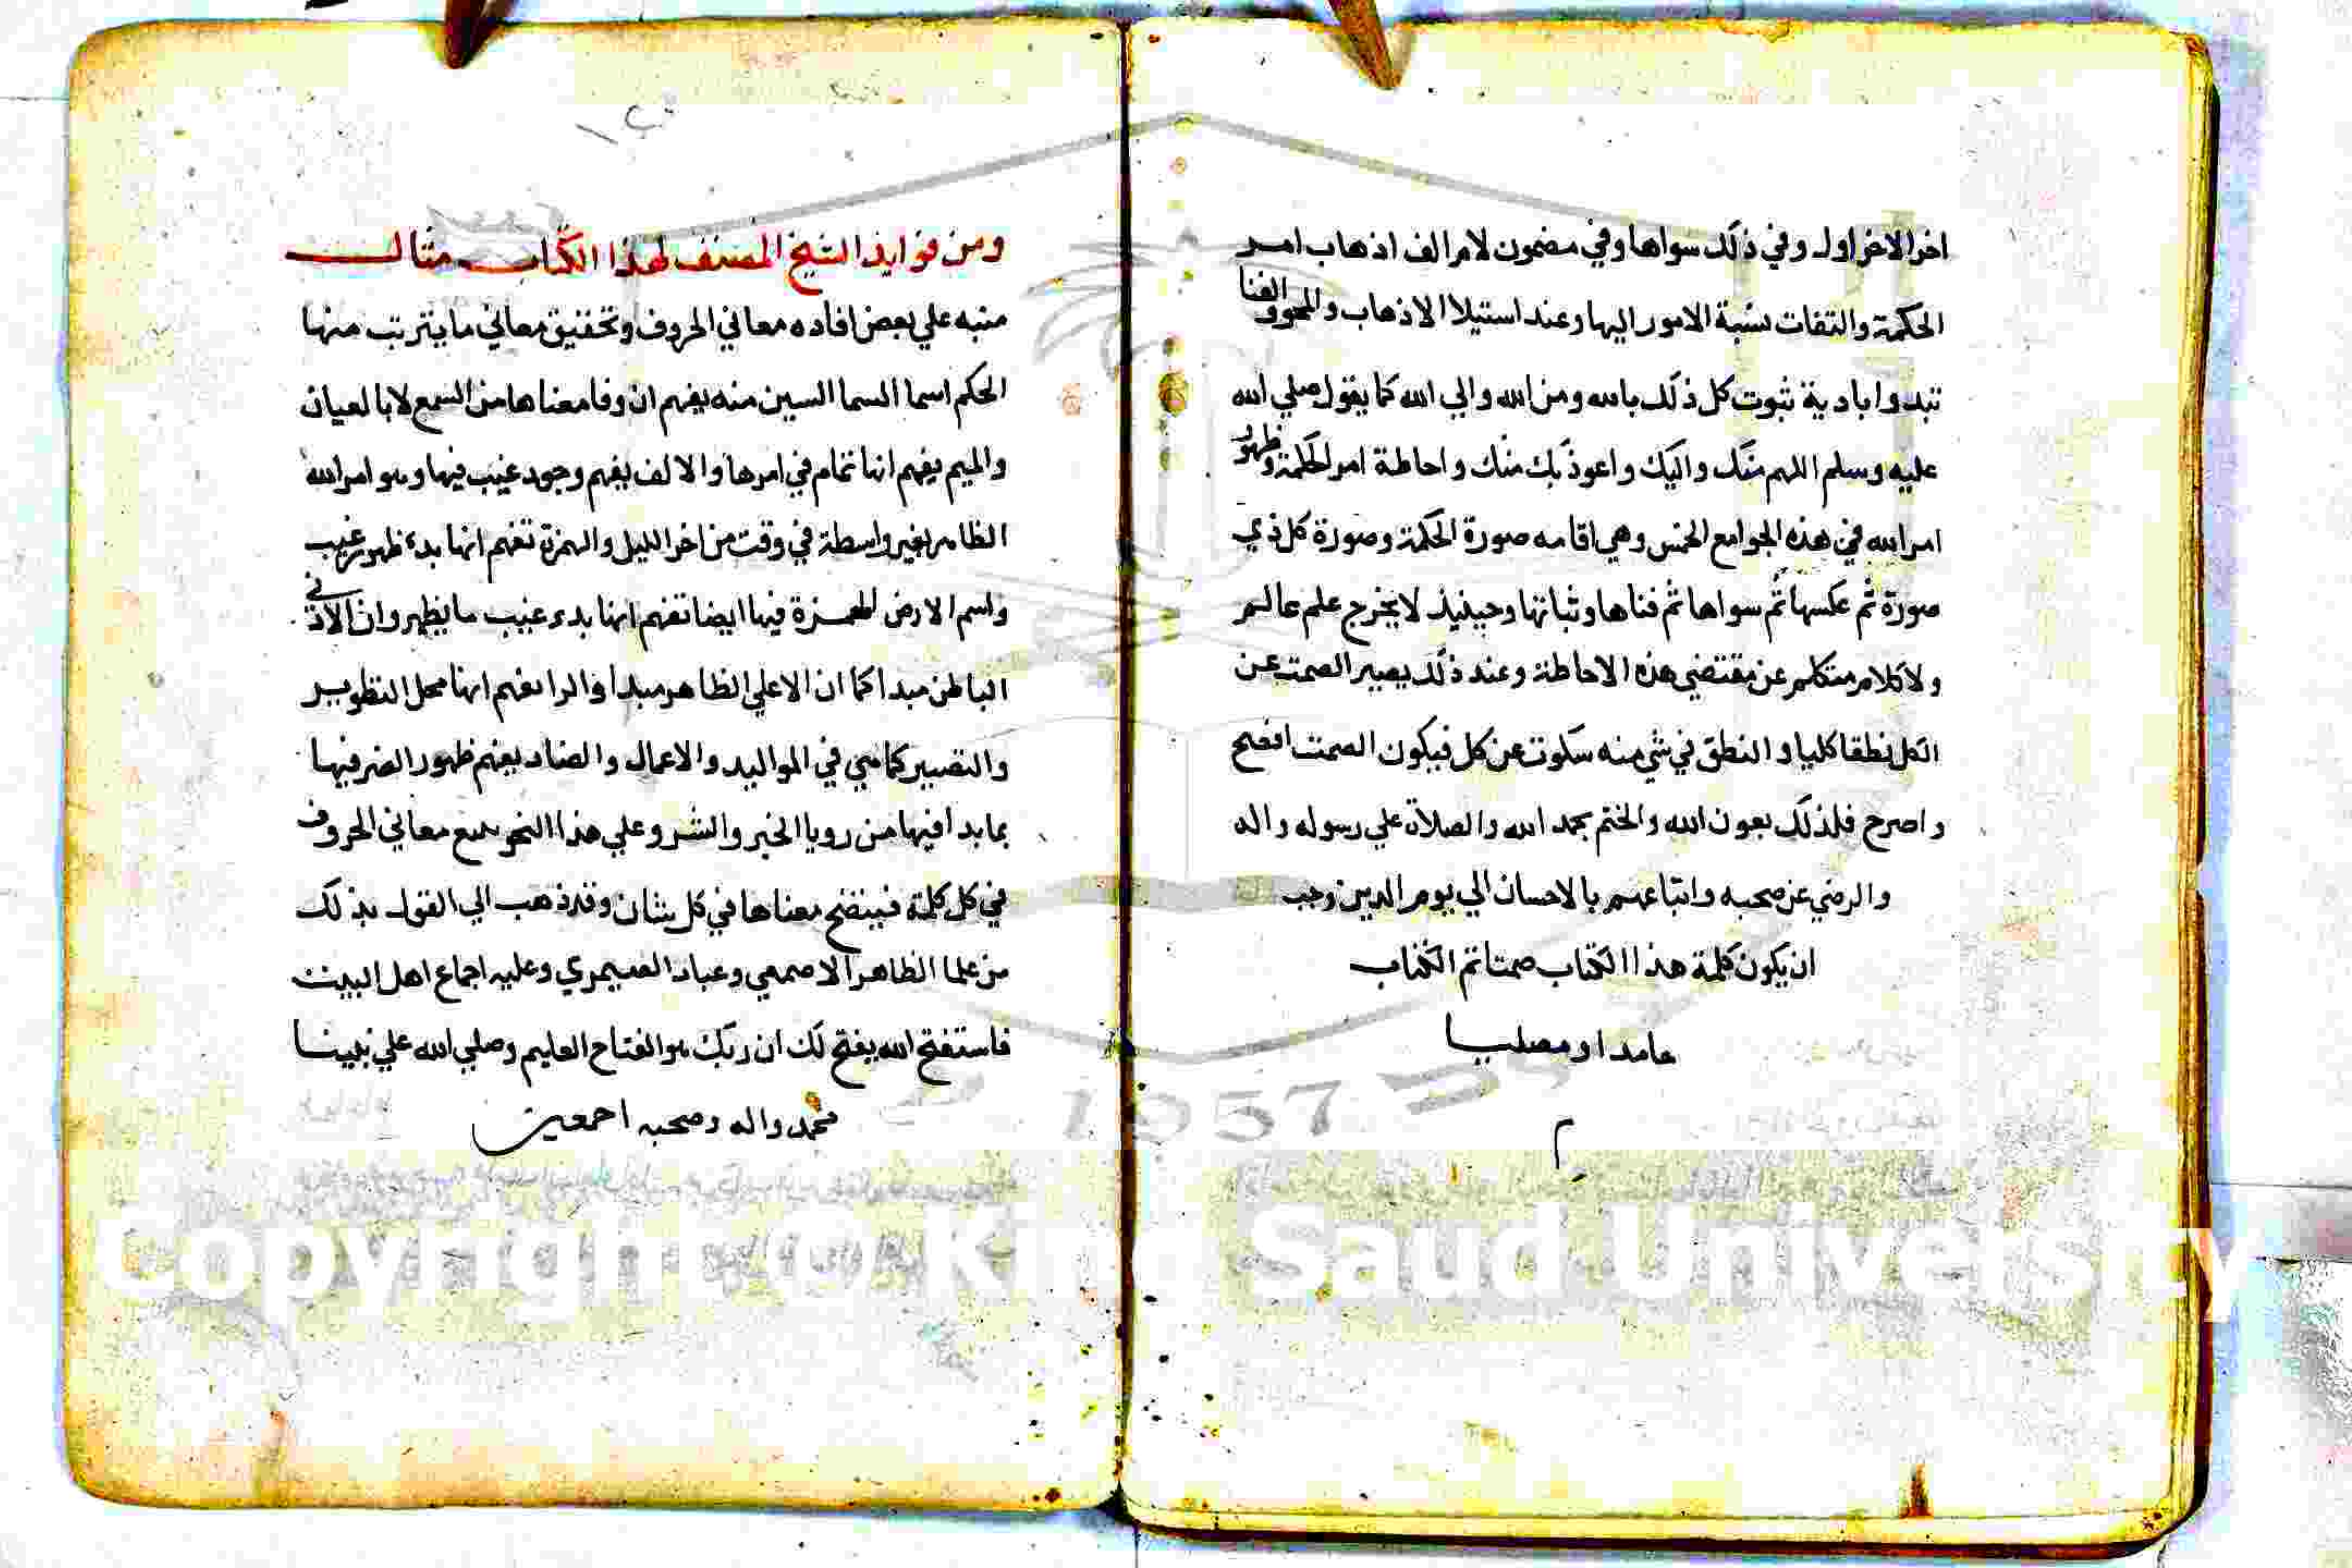 اخر الاخر اول وفي ذلك سواها وفي مضمون لام الف اذهاب امر
الحكمة والتفات نسبة الامور اليها وعند استيلا الاذهاب والمحو والفنا
تبدوا بادية ثبوت كل ذلك بالله ومن الله والي الله كما يقول صلي الله
عليه وسلم اللهم منك واليك واعوذ بك منك واحاطة امر الحكمة وظهور
امر الله في هذه الجوامع الخمس وهي اقامه صورة الحكمة وصورة كل ذي
صورة ثم عكسها ثم سواها ثم فناها وثباتها وحينيذ لا يخرج علم عالم
ولا كلام متكلم عن مقتضي هذه الاحاطة وعند ذلك يصير الصمت عن
الكل نطقا كليا والنطق في شي منه سكوت عن كل فيكون الصمت افصح
واصرح فلذلك بعون الله والختم بحمد الله والصلاة علي رسوله واله
والرضي عن صحبه واتباعهم بالاحسان الي يوم الدين وجب
ان يكون كلمة هذا الكتاب صمتا تم الكتاب
حامدا ومصليا
م
ومن فوايد الشيخ المصنف لهذا الكتاب مثال
منبه علي بعض افاده معاني الحروف وتحقيق معاني ما يترتب منها
الحكم اسما السما السين منه يفهم ان وفا معناها من السمع لا بالعيان
والميم يفهم انها تمام في امرها والالف يفهم وجود غيب فيها وهو امر الله
الظاهر بغير واسطة في وقت من اخر الليل والهمزة تفهم انها بدء ظهور غيب
واسم الارض الهمزة فيها ايضا تفهم انها بدء غيب ما يظهر وان الادني
الباطن مبدا كما ان الاعلي الظاهر مبدا والرا تفهم انها محل التطوير
والتصيير كما هي في المواليد والاعمال والضاد يفهم ظهور الضر فيها
بما بدا فيها من رويا الخير والشر وعلي هذا النحو معاني الحروف
في كل كلمة فيتضح معناها في كل شان وقد ذهب الي القول بذلك
من علما الظاهر الاصمعي وعباد الصيمري وعليه اجماع اهل البيت
فاستفتح الله يفتح لك ان ربك هو الفتاح العليم وصلي الله علي نبينا
محمد واله وصحبه اجمعين
1957
Copyright © King Saud University